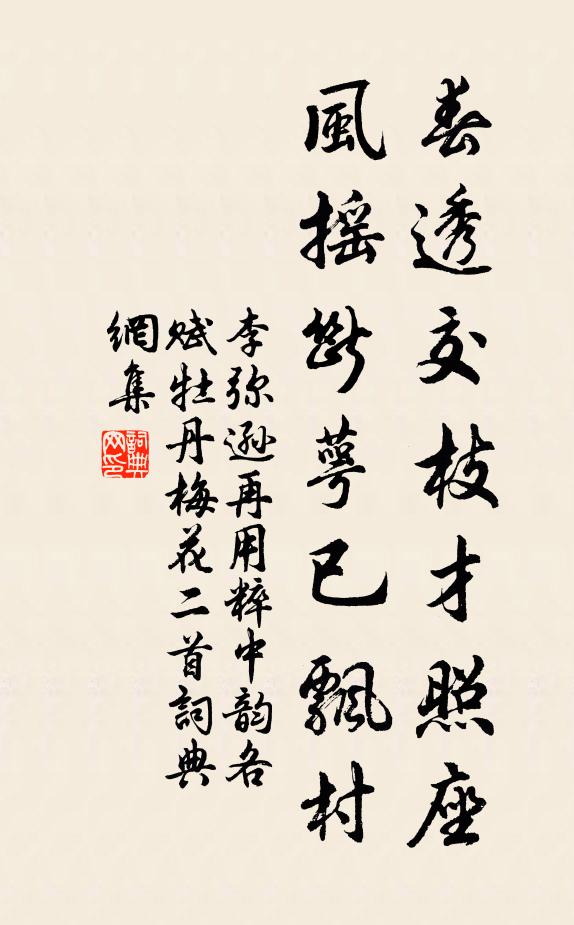 春透交枝才照座
風摇斷萼已飄村
李弥遜再用粹中韵各
賦牡丹梅花二首詞典
網集
詞典網印